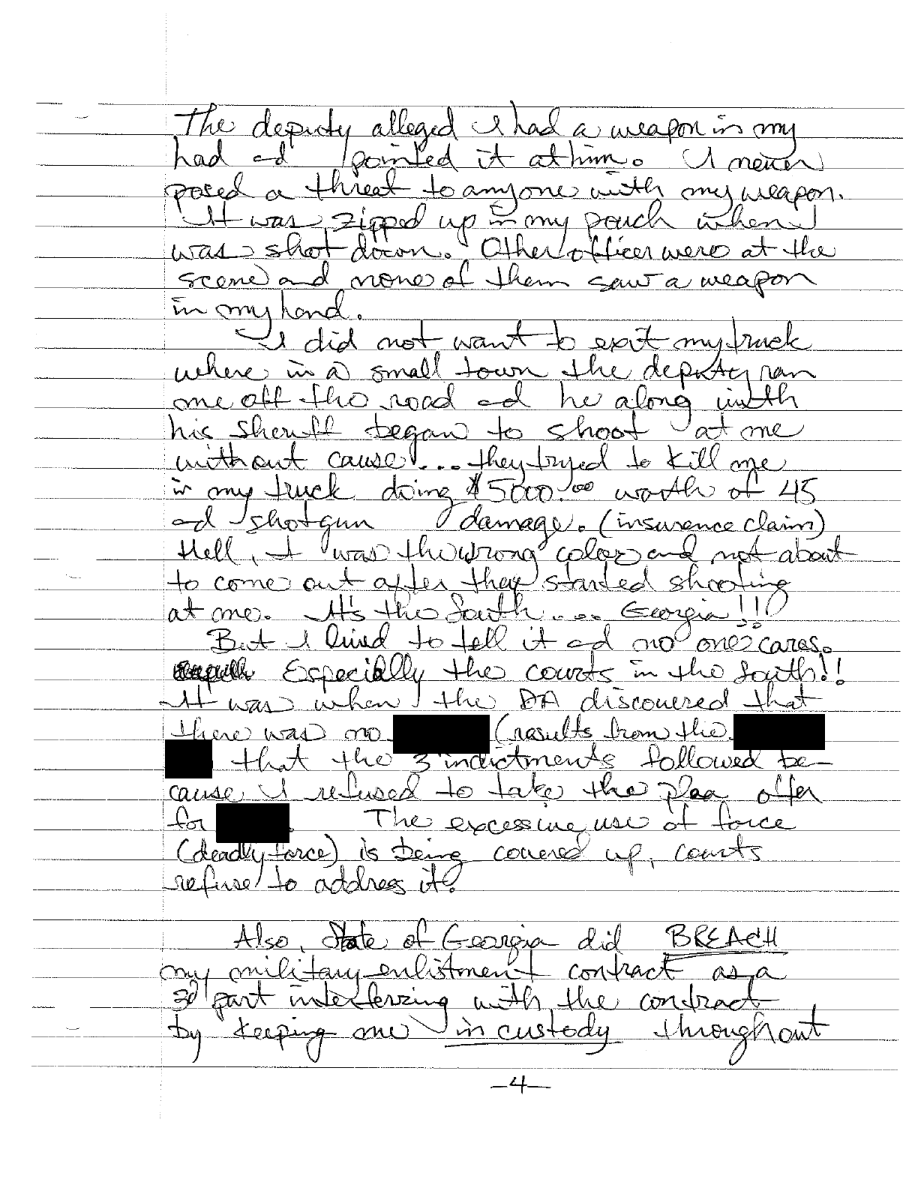 The deputy alleged I had a weapon in my
had ad pointed it at him. I never
posed a threat to anyone with my weapon.
It was zipped up in my pouch when I
was shot down. Other officer were at the
scene and none of them saw a weapon
in my hand.
I did not want to exit my truck
where in a small town the deputy ran
me off the road ad he along with
his sheriff began to shoot at me
without cause... they tryed to kill me
in my truck doing $5000.00 worth of 45
ad shotgun damage. (insurence claim)
Hell, I was the wrong color and not about
to come out after they started shooting
at me. It's the South... Georgia!!
But I lived to tell it ad no one cares.
Especially the courts in the South!!
It was when the DA discovered that
there was no (results from the
that the 3 indictments followed be-
cause I refused to take the plea offer
for . The excessive use of force
(deadly force) is being covered up, courts
refuse to address it?
Also, State of Georgia did BREACH
my military enlistment contract as a
3d part interferring with the contract
by keeping me in custody throughout
-4-